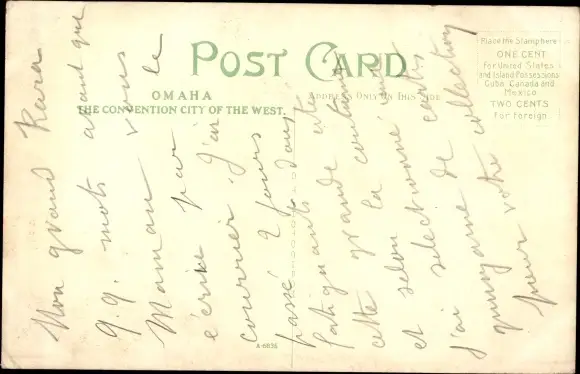 POST CARD
OMAHA
THE CONVENTION CITY OF THE WEST.
ADDRESS ONLY ON THIS SIDE
Place the Stamp here
ONE CENT
for United States
and Island Possessions
Cuba, Canada and
Mexico
TWO CENTS
for Foreign.
Mon grand Kara
q.q. mots avant que
Maman vous
écrive par le
courrier. J'ai
passé 2 jours
fatiguants
cette grande
et selon la
J'ai sélectionné
de cartes
pour votre collection
A-6636